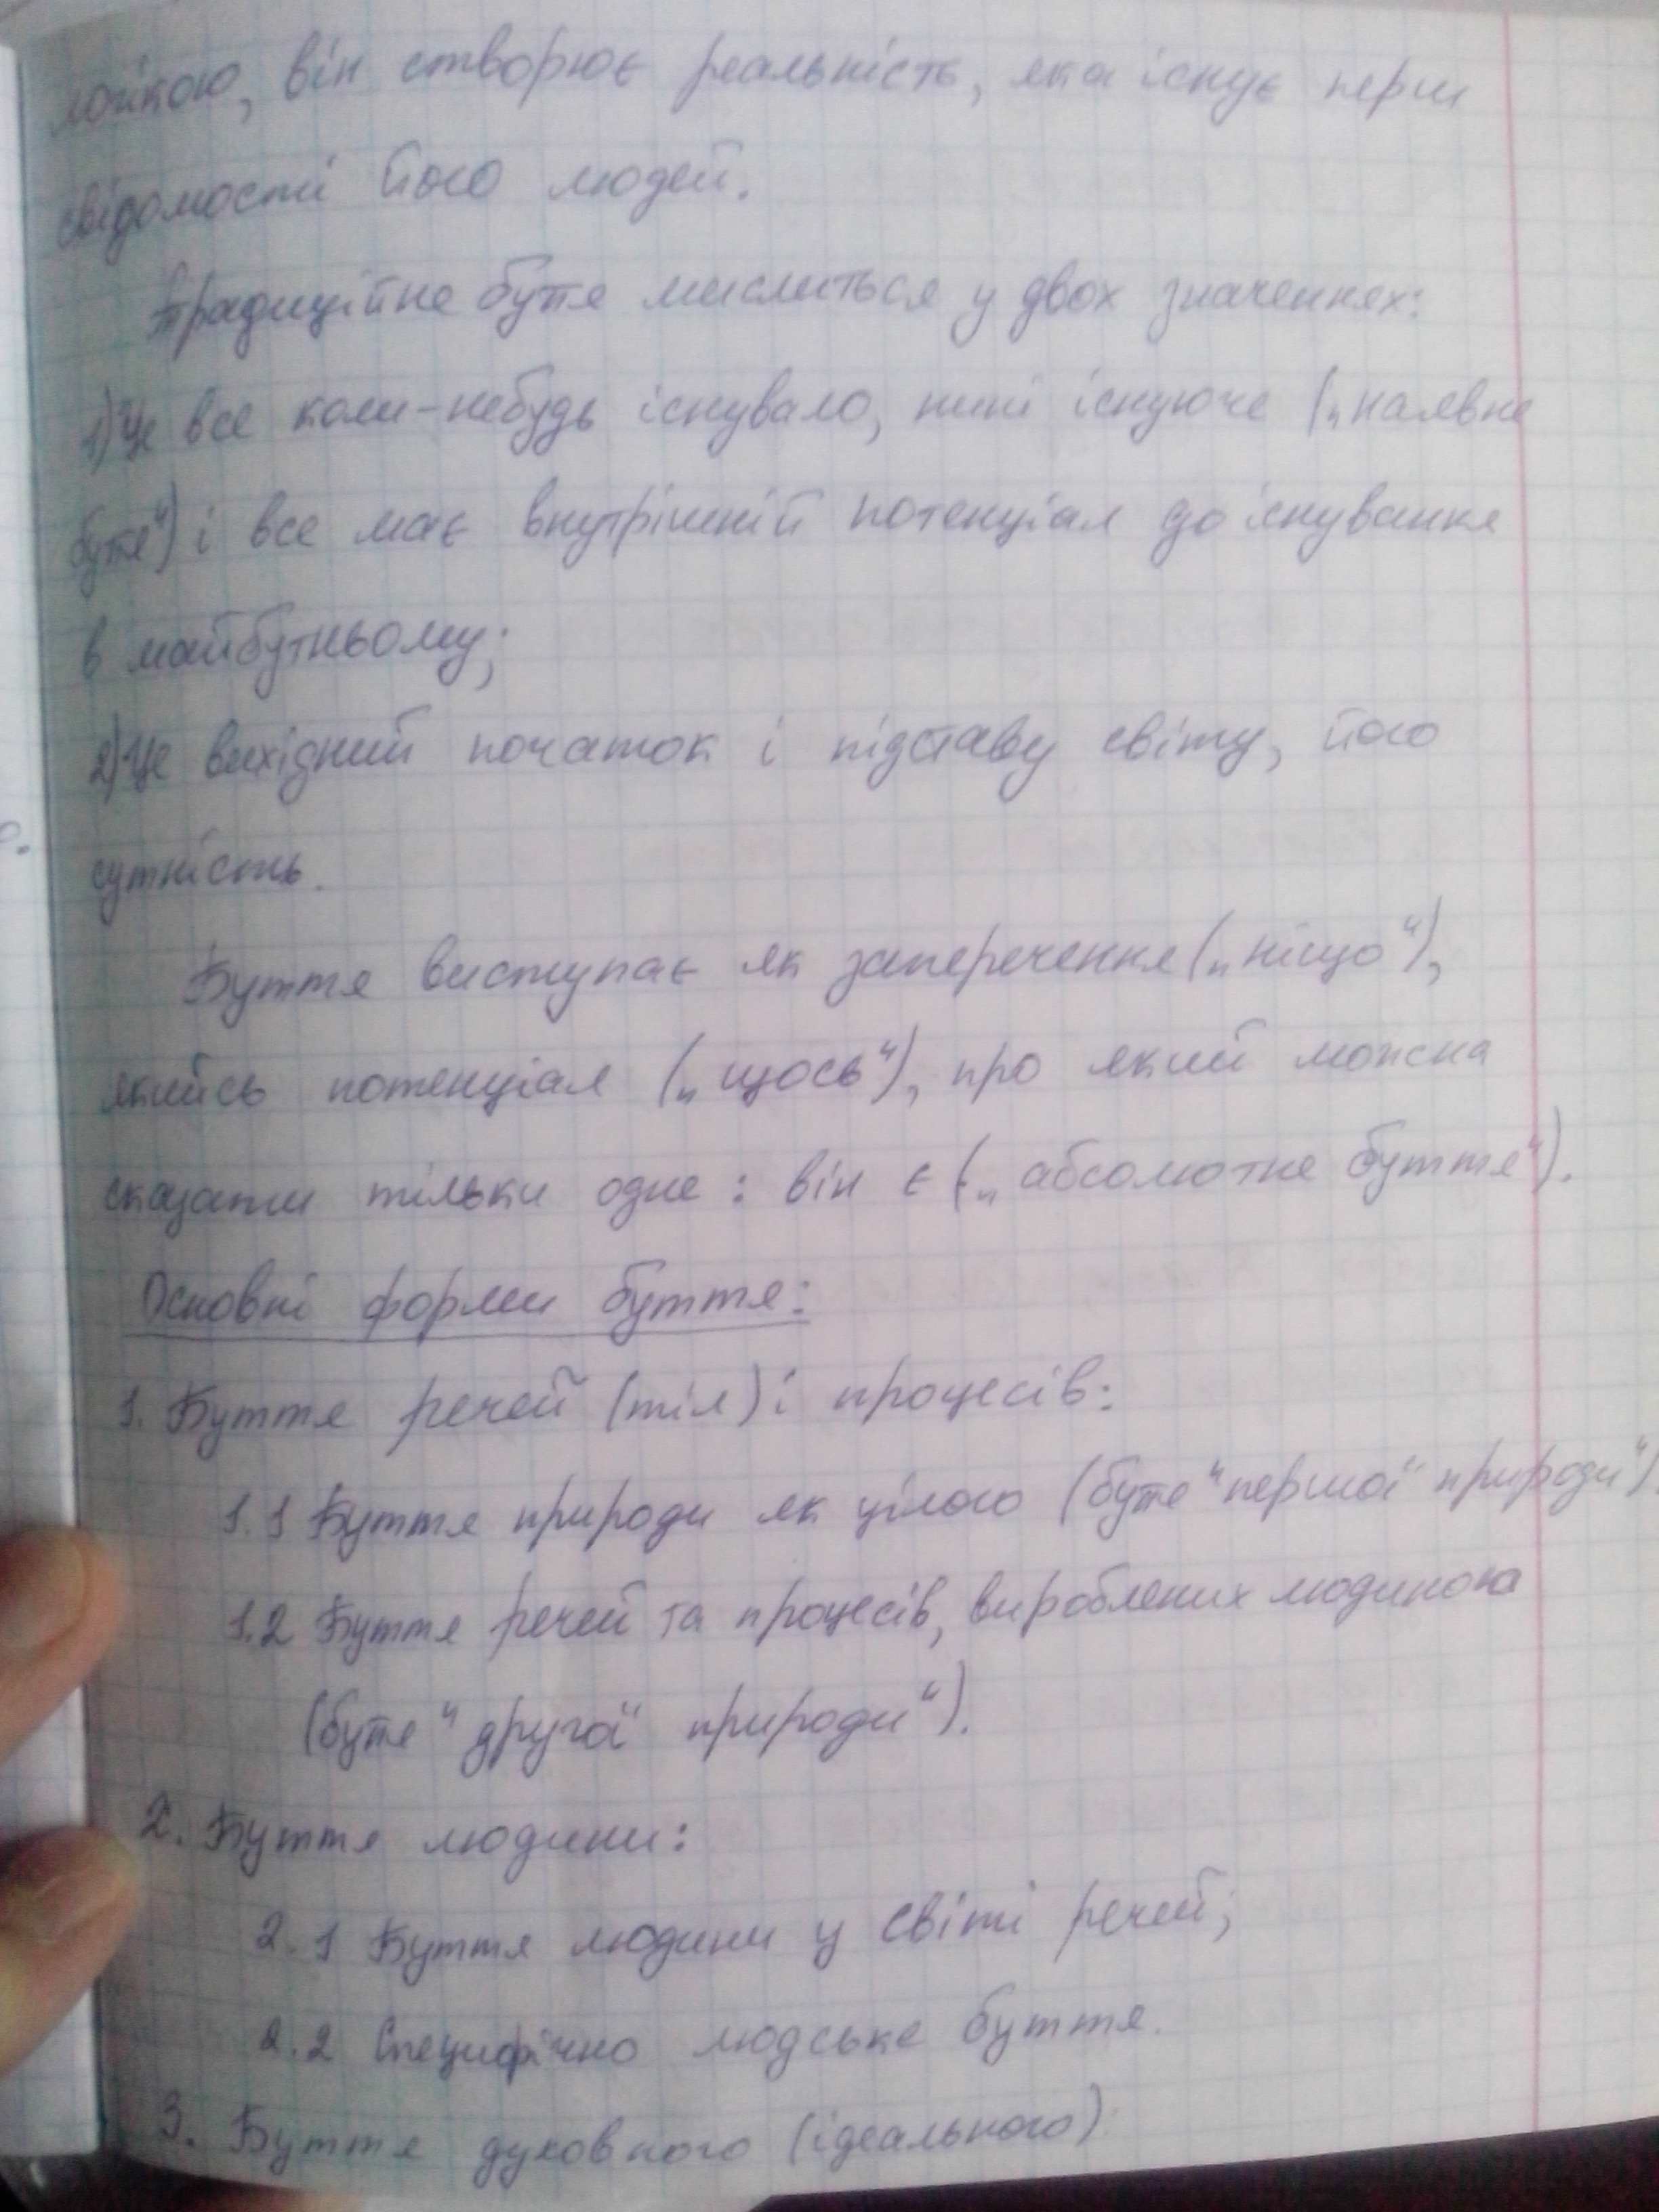 він створює реальність, яка існує перш
свідомості його людей.
Традиційне буте мислиться у двох значеннях:
1) Це все коли-небудь існувало, нині існуюче („наявне
буте“) і все має внутрішній потенціал до існування
в майбутньому;
2) Це вихідний початок і підставу світу, його
сутність.
Буття виступає як заперечення („ніщо“),
якийсь потенціал („щось“), про який можна
сказати тільки одне: він є („абсолютне буття“).
Основні форми буття:
1. Буття речей (тіл) і процесів:
1.1 Буття природи як цілого (буте “першої природи“)
1.2 Буття речей та процесів, вироблених людиною
(буте “другої природи“).
2. Буття людини:
2.1 Буття людини у світі речей;
2.2 Специфічно людське буття.
3. Буття духовного (ідеального)